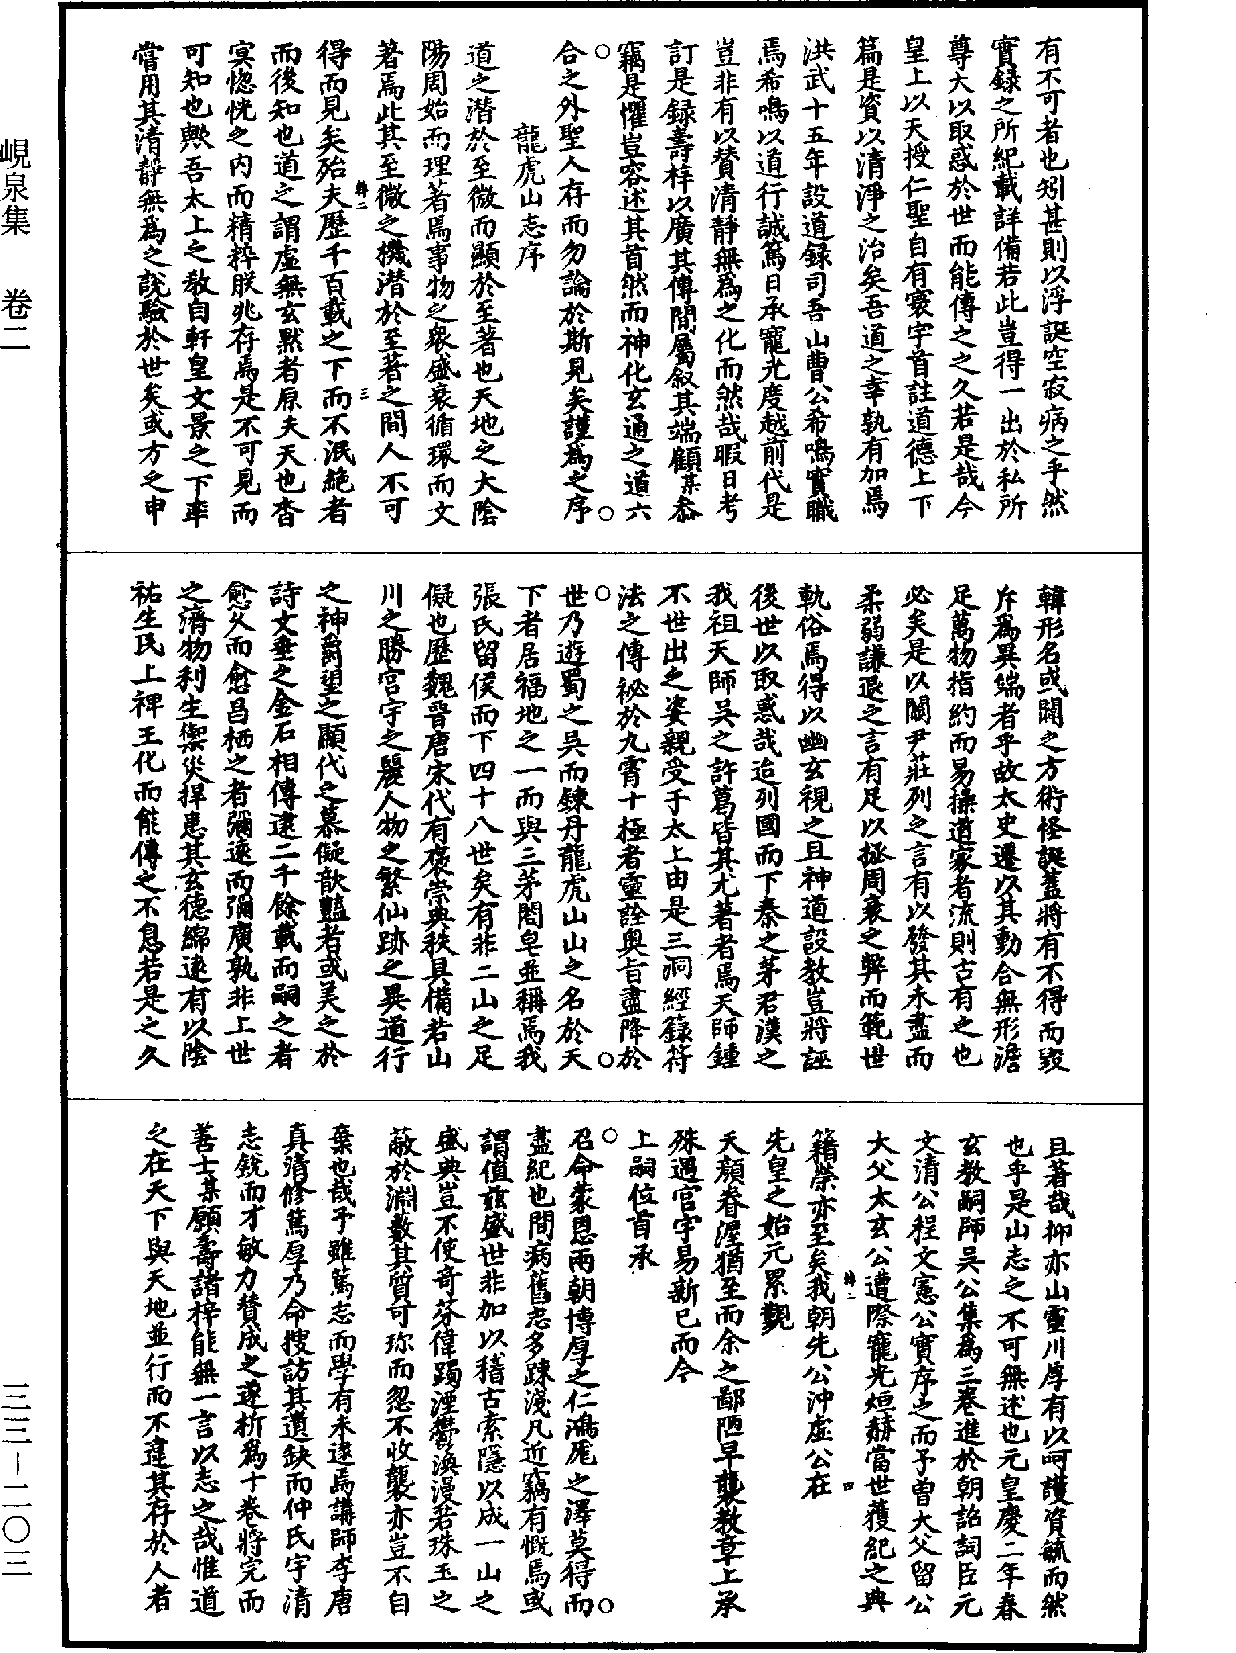 峴泉集　卷二
有不可者也矧甚則以浮誕空寂病之乎然
實録之所紀載詳備若此豈得一出於私所
尊大以取惑於世而能傳之之久若是哉今
皇上以天授仁聖自有寰宇首註道德上下
篇是資以清淨之治矣吾道之幸孰有加焉
洪武十五年設道録司吾山曹公希鳴實職
焉希鳴以道行誠篤日承寵光度越前代是
豈非有以贊清靜無為之化而然哉暇日考
訂是録壽梓以廣其傳間屬叙其端顧某叅
竊是懼豈容述其首然而神化玄通之道六
合之外聖人存而勿論於斯見矣謹為之序
龍虎山志序
道之潛於至微而顯於至著也天地之大陰
陽周始而理著焉事物之衆盛衰循環而文
著焉此其至微之機潛於至著之間人不可
得而見矣殆夫歷千百載之下而不泯絶者
而後知也道之謂虛無玄默者原夫天也杳
㝠惚恍之内而精粹朕兆存焉是不可見而
可知也歟吾太上之教自軒皇文景之下率
嘗用其清靜無為之說驗於世矣或方之申
韓形名或闢之方術怪誕蓋將有不得而毀
斥為異端者乎故太史遷以其動合無形澹
足萬物指約而易操道家者流則古有之也
必矣是以關尹莊列之言有以發其未盡而
柔弱謙退之言有足以拯周衰之弊而範世
軌俗焉得以幽玄視之且神道設教豈將誣
後世以取惑哉迨列國而下秦之茅君漢之
我祖天師吳之許葛皆其尤著者焉天師鍾
不世出之姿親受于太上由是三洞經籙符
法之傳祕於九霄十極者靈詮奧旨盡降於
世乃遊蜀之吳而錬丹龍虎山山之名於天
下者居福地之一而與三茅閤皂並稱焉我
張氏留侯而下四十八世矣有非二山之足
儗也歷魏晉唐宋代有褒崇典秩具備若山
川之勝宮宇之麗人物之繁仙跡之異道行
之神爵望之顯代之慕儗歆豔者或美之於
詩文垂之金石相傳逮二千餘載而嗣之者
愈久而愈昌栖之者彌遠而彌廣孰非上世
之濟物利生禦災捍患其玄德綿遠有以陰
祐生民上裨王化而能傳之不息若是之久
且著哉抑亦山靈川厚有以呵護資毓而然
也乎是山志之不可無述也元皇慶二年春
玄教嗣師吳公集為三卷進於朝詔詞臣元
文清公程文憲公實序之而予曽大父留公
大父太玄公遭際寵光烜赫當世獲紀之典
籍榮亦至矣我朝先公沖虛公在
先皇之始元累覲
天顔眷渥猶至而余之鄙陋早襲教章上承
殊遇官宇易新已而今
上嗣位首承
召命蒙恩兩朝博厚之仁鴻厖之澤莫得而
盡紀也間病舊志多踈淺凡近竊有慨焉或
謂值茲盛世非加以稽古索隱以成一山之
盛典豈不使奇芬偉躅湮鬱漁漫若珠玉之
蔽於淵藪其質可珎而忽不收襲亦豈不自
棄也哉予雖篤志而學有未逮焉講師李唐
真清修篤厚乃命搜訪其遺缺而仲氏宇清
志銳而才敏力賛成之遂析為十卷將完而
善士某願壽諸梓能無一言以志之哉惟道
之在天下與天地並行而不違其存於人者
轉二
三
轉二
四
三三－二〇三